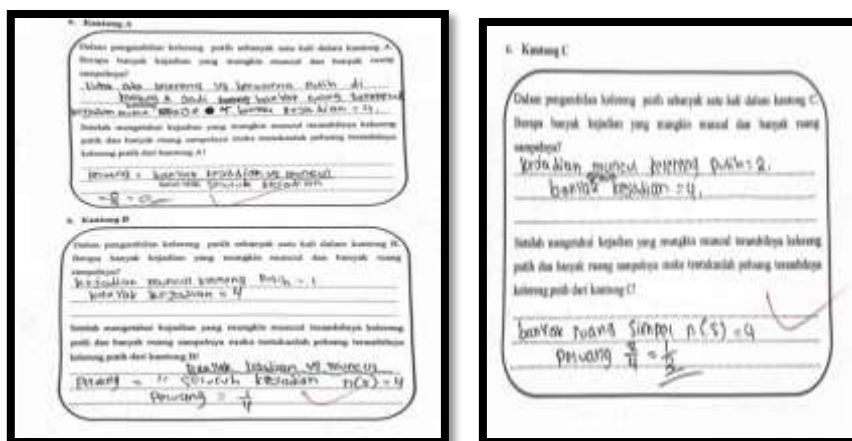 a. Kantong A
Dalam pengambilan kelereng putih sebanyak satu kali dalam kantong A.
Berapa banyak kejadian yang mungkin muncul dan banyak ruang
sampelnya?
kejadian = 4.
Setelah mengetahui kejadian yang mungkin muncul terambilnya kelereng
putih dan banyak ruang sampelnya maka tentukanlah peluang terambilnya
kelereng putih dari kantong A!
Peluang = banyak kejadian yg muncul
banyak seluruh kejadian
= 0
Kantong B
Dalam pengambilan kelereng putih sebanyak satu kali dalam kantong B.
Berapa banyak kejadian yang mungkin muncul dan banyak ruang
sampelnya?
kejadian muncul kelereng Putih = 1
banyak kejadian = 4
Setelah mengetahui kejadian yang mungkin muncul terambilnya kelereng
putih dan banyak ruang sampelnya maka tentukanlah peluang terambilnya
kelereng putih dari kantong B!
banyak kejadian yg muncul
Peluang = seluruh kejadian n(s) = 4
Peluang = 1/4
Kantong C
Dalam pengambilan kelereng putih sebanyak satu kali dalam kantong C
Berapa banyak kejadian yang mungkin muncul dan banyak ruang
sampelnya?
kejadian muncul kelereng Putih = 2.
banyak kejadian = 4.
Setelah mengetahui kejadian yang mungkin muncul terambilnya kelereng
putih dan banyak ruang sampelnya maka tentukanlah peluang terambilnya
kelereng putih dari kantong C!
banyak ruang Simpel n(S) = 4
Peluang 2/4 = 1/2